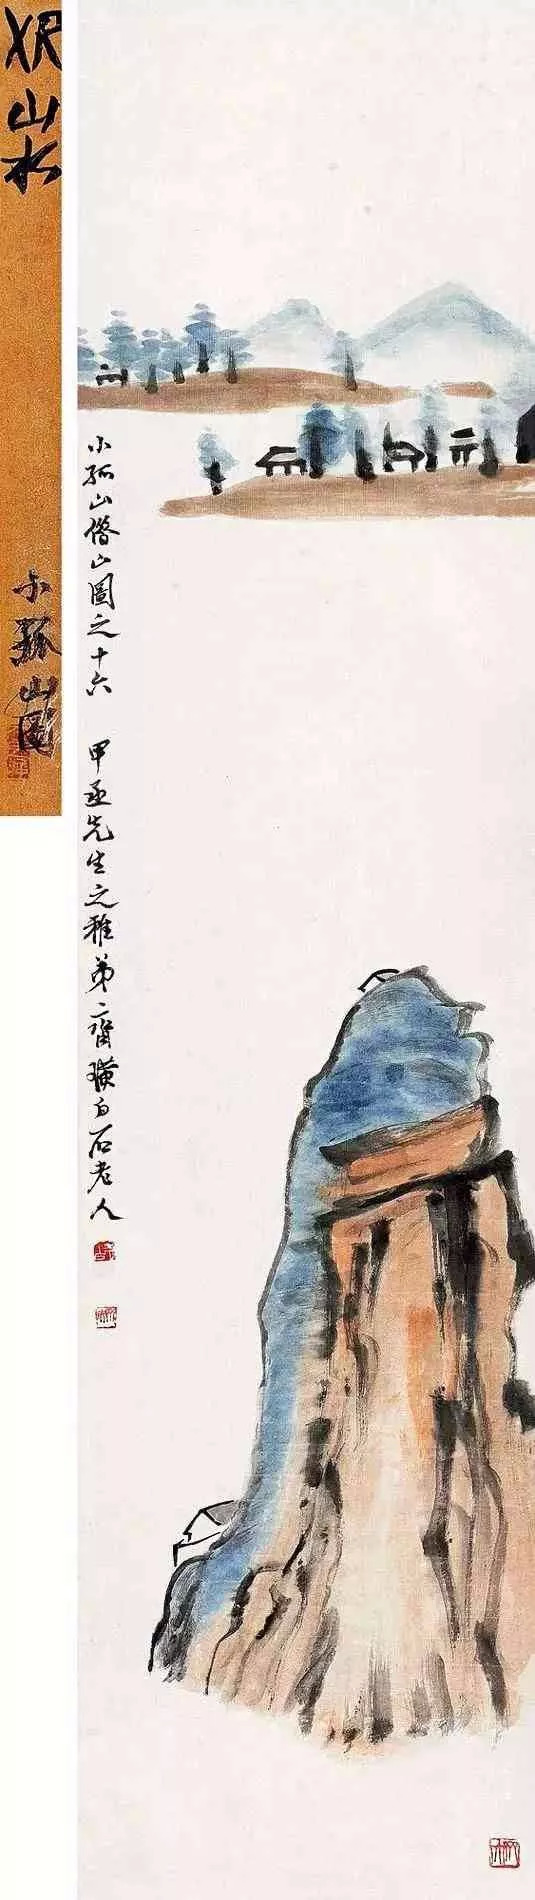 小孤山借山圖之十六 甲丞先生之雅 弟齊璜白石老人
山水
小孤山圖